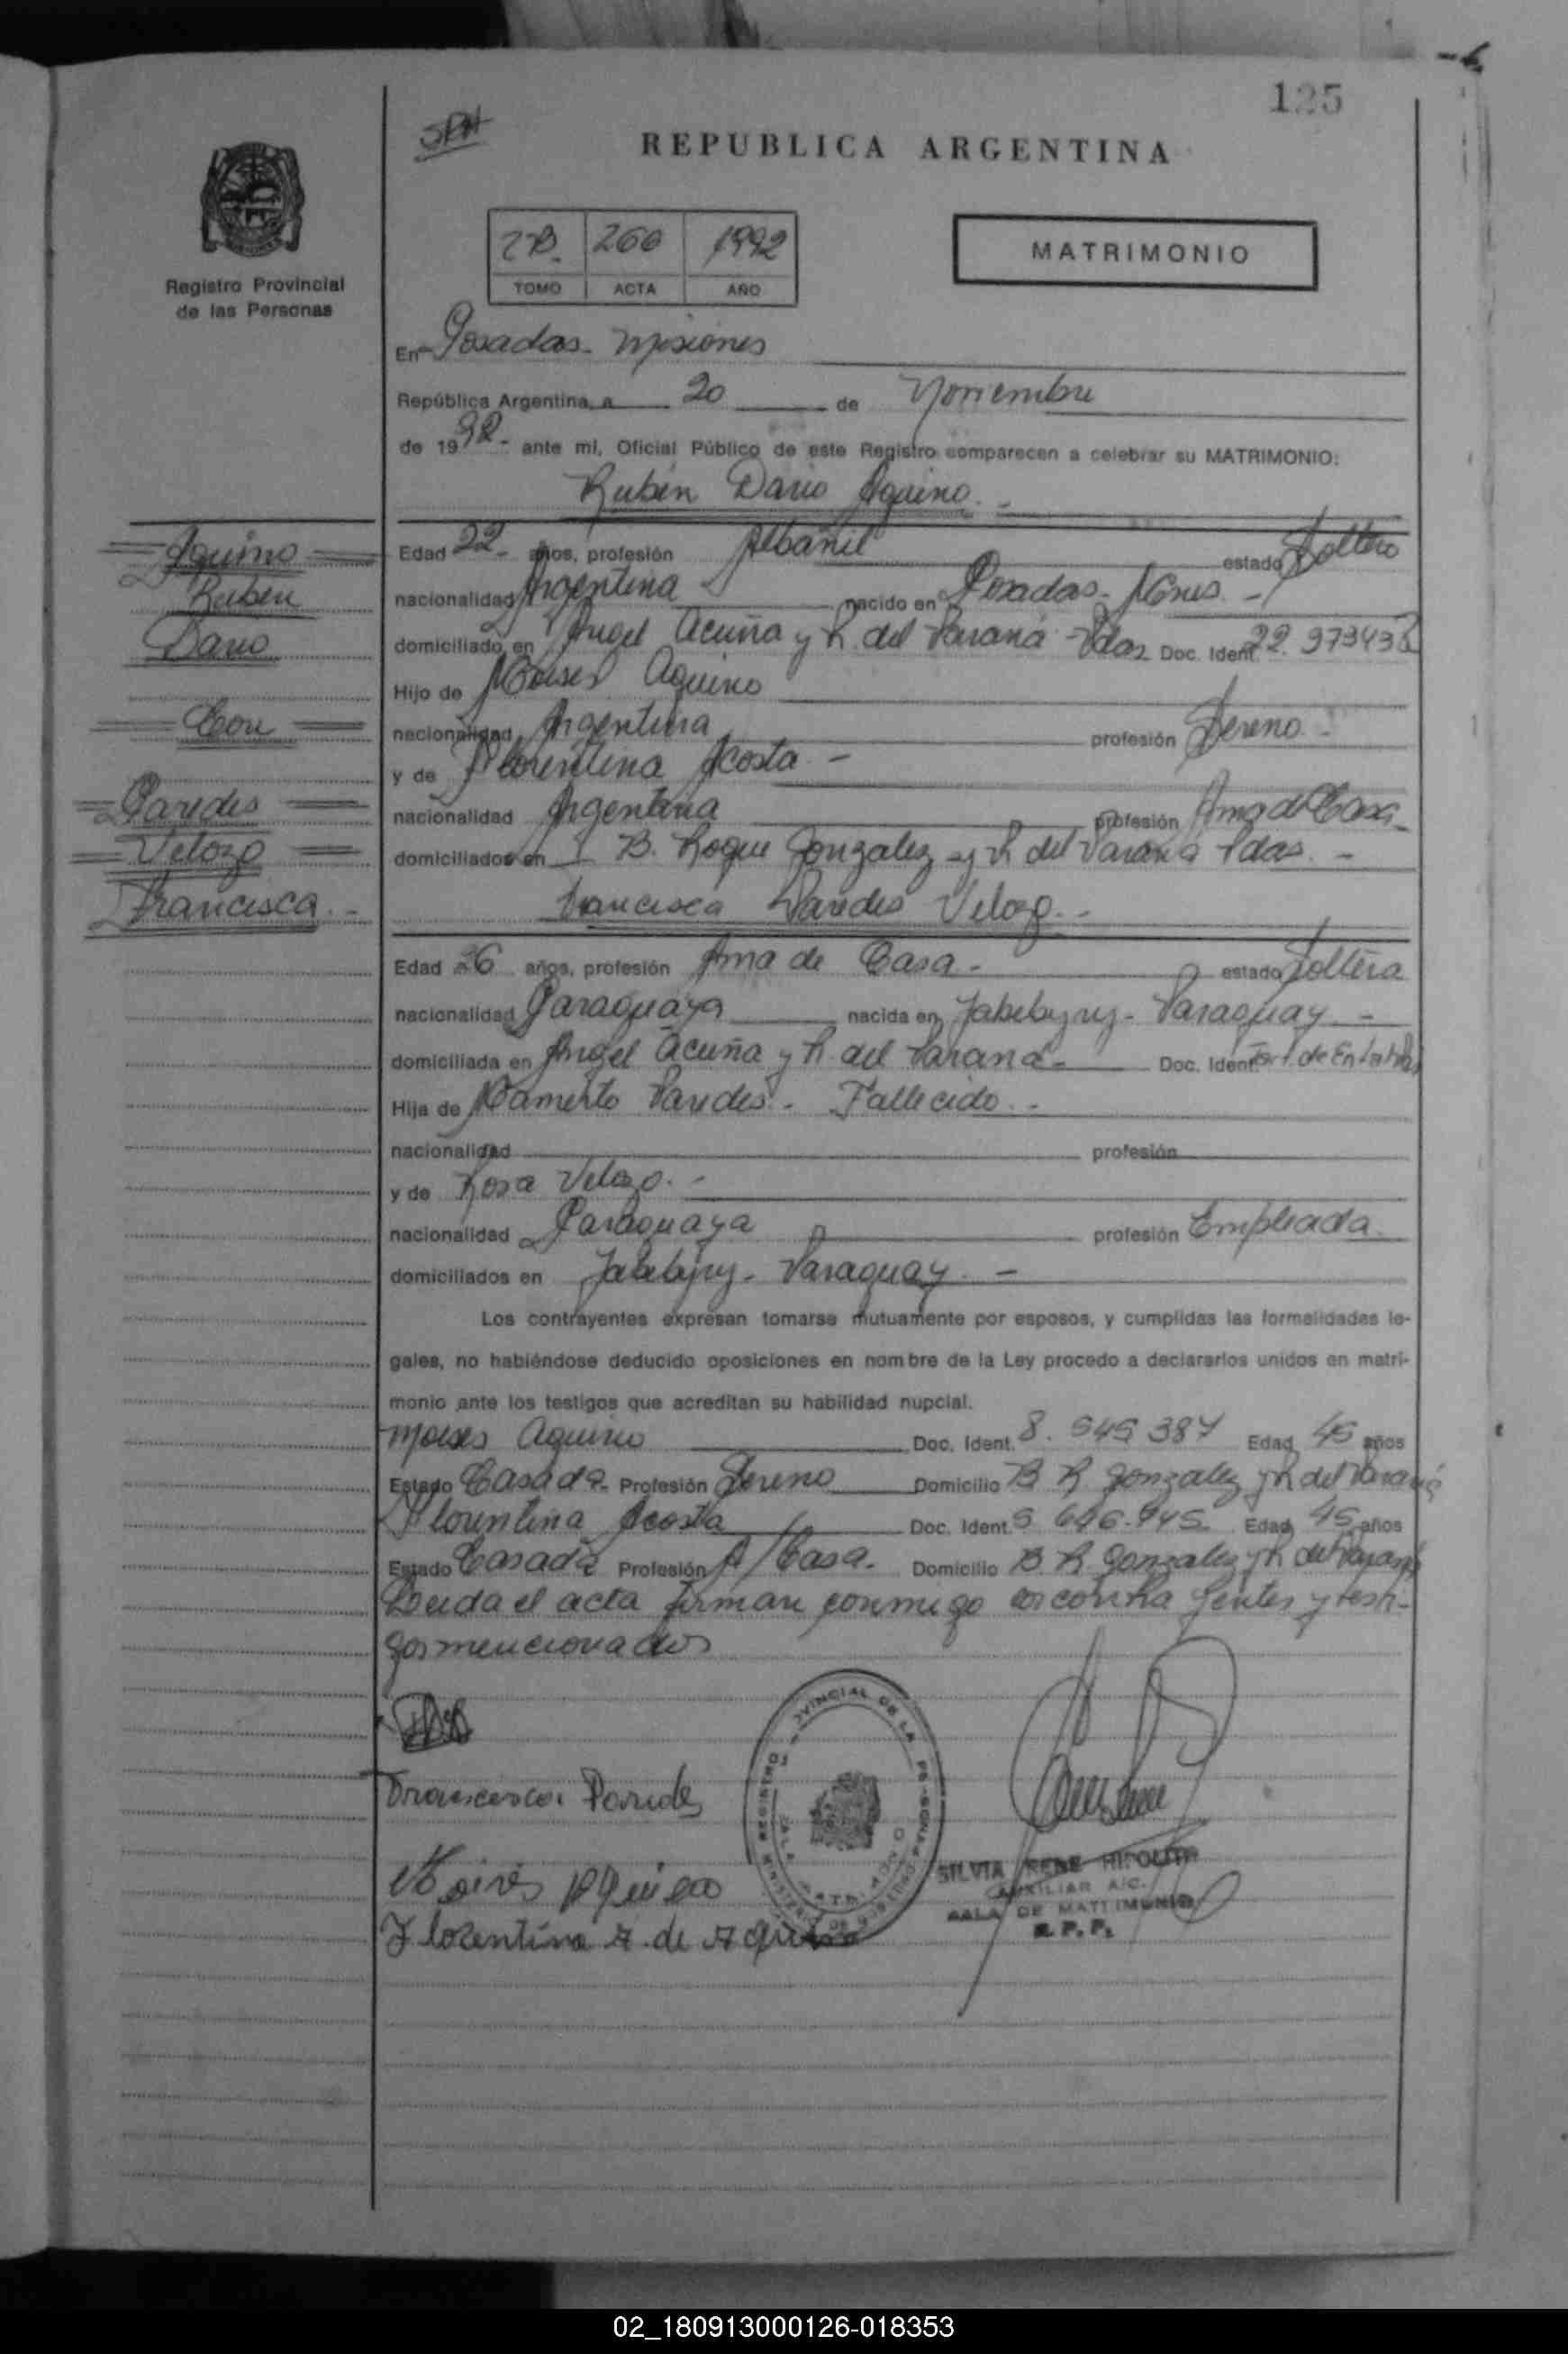 125
SPH
REPUBLICA ARGENTINA
Registro Provincial
de las Personas
2B. 266 1992
TOMO ACTA AÑO
MATRIMONIO
En Posadas - Misiones
República Argentina, a 20 de Noviembre
de 1992- ante mi, Oficial Público de este Registro comparecen a celebrar su MATRIMONIO:
Rubén Dario Aquino. -
Aquino
Ruben
Dario
Con
Paredes
Velozo
Francisca. -
Edad 22- años, profesión Albañil estado Soltero
nacionalidad Argentina nacido en Posadas - Mnes -
domiciliado en Angel Acuña y R. del Paraná - Pdas Doc. Ident. 22.973438
Hijo de Moises Aquino
nacionalidad Argentina profesión Sereno -
y de Florentina Acosta -
nacionalidad Argentina profesión Ama de Casa -
domiciliados en B. Roque Gonzalez y R del Paraná Pdas. -
Francisca Paredes Velozo. -
Edad 26 años, profesión Ama de Casa - estado Soltera
nacionalidad Paraguaya nacida en Jabebyry - Paraguay -
domiciliada en Angel Acuña y R. del Paraná - Doc. Ident. de Entrada
Hija de Mamerto Paredes - Fallecido. -
nacionalidad profesión
y de Rosa Velozo. -
nacionalidad Paraguaya profesión Empleada
domiciliados en Jabebyry - Paraguay. -
Los contrayentes expresan tomarse mutuamente por esposos, y cumplidas las formalidades le-
gales, no habiéndose deducido oposiciones en nombre de la Ley procedo a declararlos unidos en matri-
monio ante los testigos que acreditan su habilidad nupcial.
Moises Aquino Doc. Ident. 8.545 387 Edad 45 años
Estado Casado. Profesión Sereno Domicilio B R Gonzalez y R del Paraná
Florentina Acosta Doc. Ident. 5 646.945 Edad 45 años
Estado Casada Profesión A/Casa. Domicilio B. R. Gonzalez y R. del Paraná
Leida el acta firman conmigo los contra yentes y testi-
gos mencionados
Francisca Paredes
Moises Aquino
Florentina A. de Aquino
REGISTRO PROVINCIAL DE LA PERSONA
SILVIA RENE HIPOLITA
AUXILIAR A/C.
SALA DE MATRIMONIO
R. P. P.
02_180913000126-018353